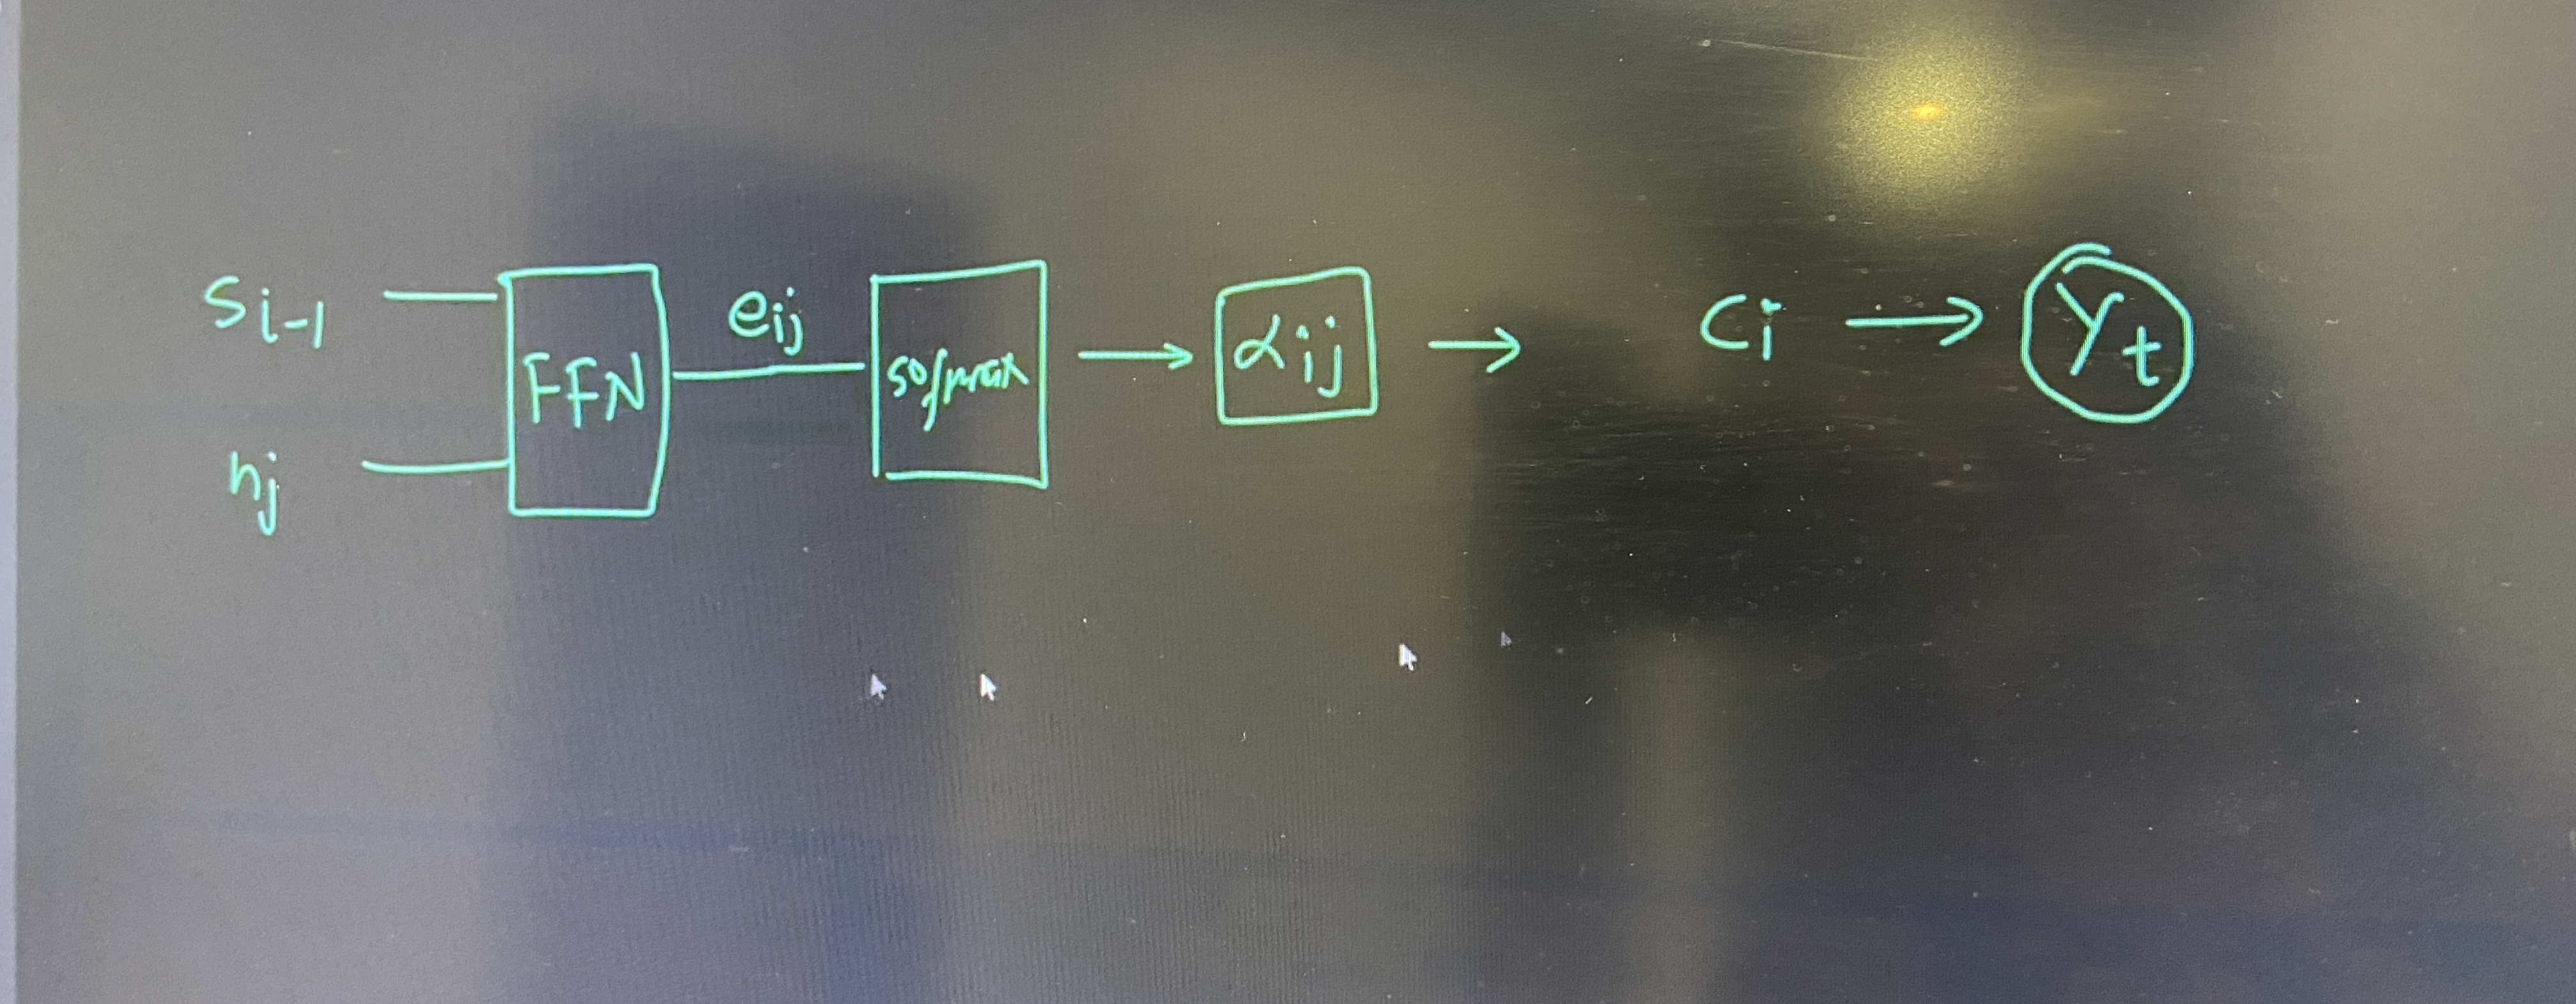 S i-1
FFN
eij
softmax
αij
Ci
Yt
hj